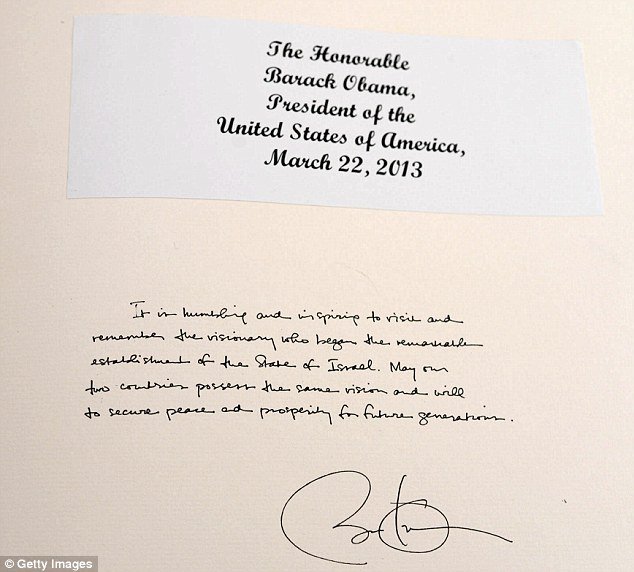 The Honorable
Barack Obama,
President of the
United States of America,
March 22, 2013
It is humbling and inspiring to visit and
remember the visionary who began the remarkable
establishment of the State of Israel. May our
two countries possess the same vision and will
to secure peace and prosperity for future generations.
© Getty Images